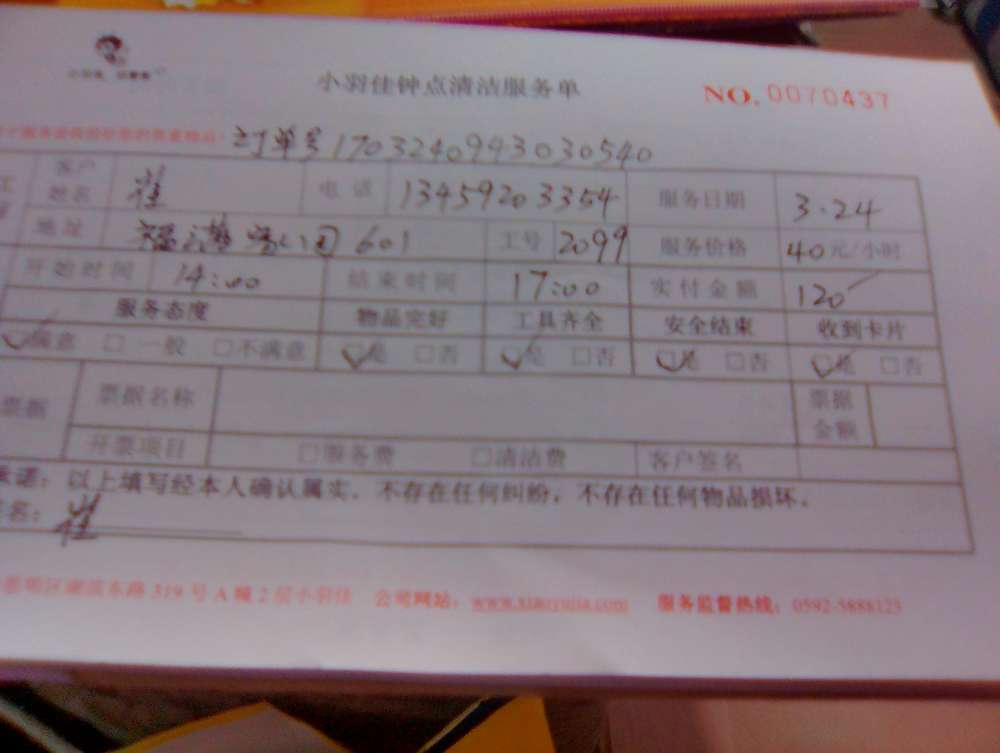 小羽佳钟点清洁服务单 NO. 0070437
订单号 1703240943030540
客户姓名 崔 电话 13459203354 服务日期 3.24
地址 601 工号 2099 服务价格 40元/小时
开始时间 14:00 结束时间 17:00 实付金额 120
服务态度 物品完好 工具齐全 安全结束 收到卡片
满意 □ 一般 □不满意 是 □否 是 □否 是 □否 是 □否
票据 票据名称 票据金额
开票项目 □服务费 □清洁费 客户签名
承诺：以上填写经本人确认属实，不存在任何纠纷，不存在任何物品损坏。
签名：崔
319号A幢2层小羽佳 公司网站：www.xiaoyujia.com 服务监督热线：0592-5888123